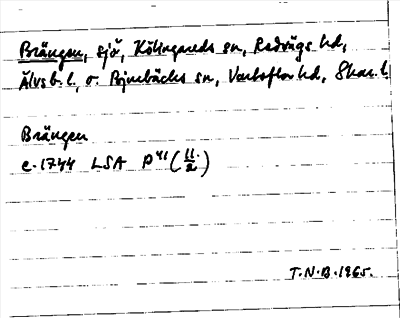 Brängen, sjö, Kölingareds sn, Redvägs hd,
Älvsb. l., o. Böjnebäcks sn, Vartofta hd, Skar. l.
Brängen
c. 1744 LSA P41 (11/2)
T.N.B. 1965.